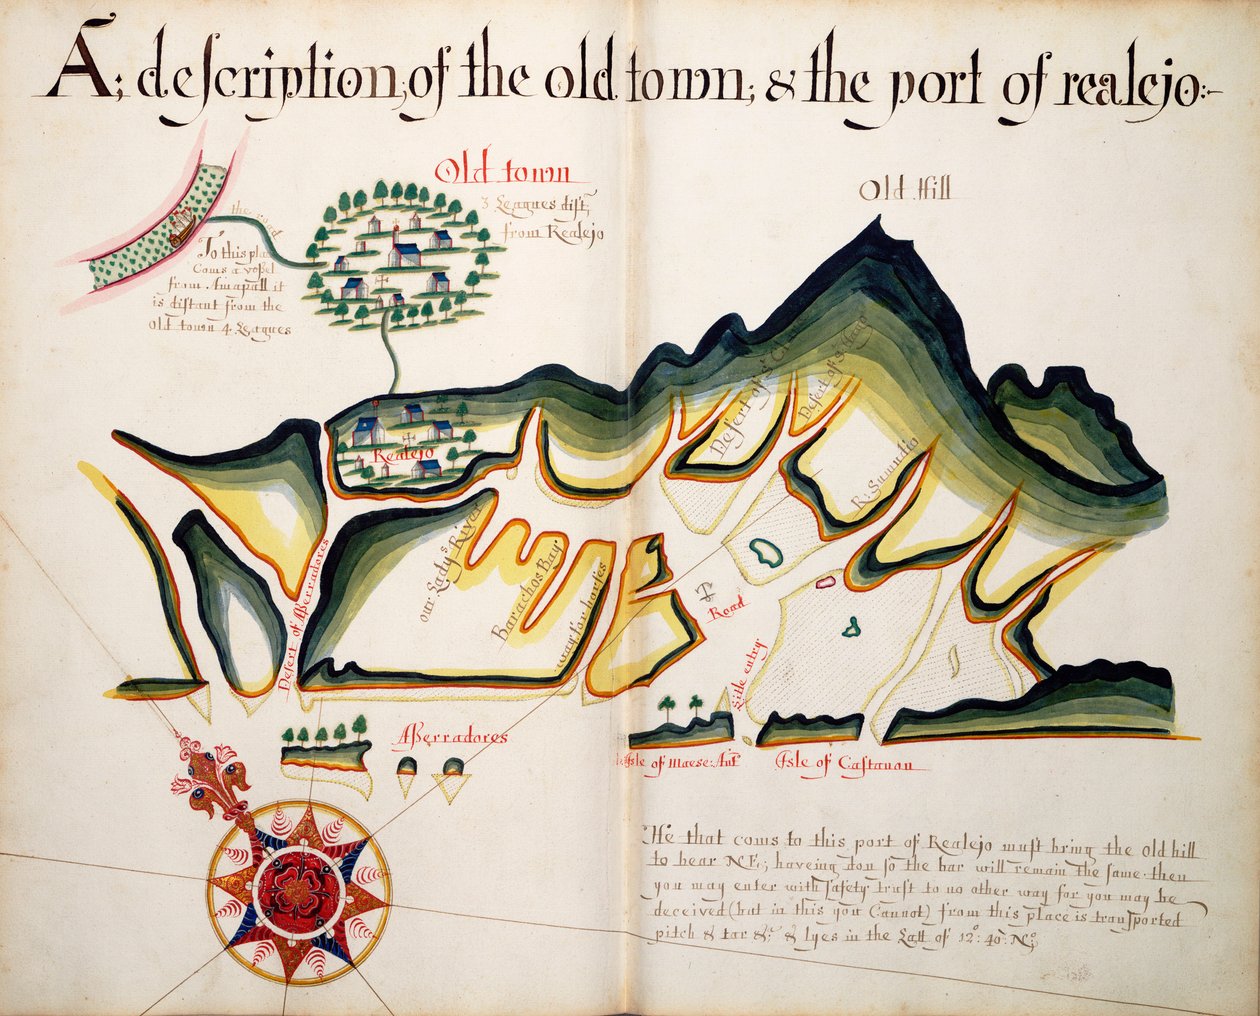 A; deſcription; of the old town; & the port of realejo:-
Old town
3 Leagues diſt,
from Realejo
Old Hill
the road
To this pla
Coms a veßel
from Amapall it
is diſtant from the
Old town 4 Leagues
Realejo
Deſert of Aßerradores
our Ladys River
Barachos Bay.
way for horſes
Road
Litle entry
R: Sumudio
Aßerradores
Iſle of Maese: Ant
Iſle of Caſtanon
He that coms to this port of Realejo muſt bring the old hill
to bear NE; haveing don ſo the bar will remain the ſame. then
you may enter with ſafety truſt to no other way for you may be
deceived (but in this you Cannot) from this place is tranſported
pitch & tar &c & lyes in the Latt of 12°: 40: No;